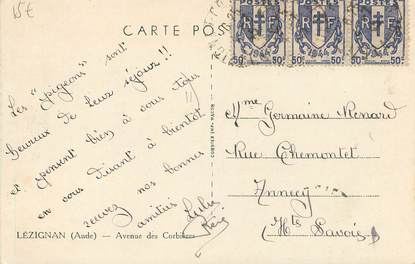 15€
CARTE POS
POSTES POSTES POSTES
RF RF RF
50c 50c 50c 50c 50c 50c
Les "pigeons" sont
heureux de leur séjour !!
et pensent bien à vous tous
en vous disant à bientôt
recevez nos bonnes
amitiés
Mme Germaine Menard
Rue Themontet
Annecy
Hte Savoie
COMBIER IMP. MACON
LÉZIGNAN (Aude) — Avenue des Corbières